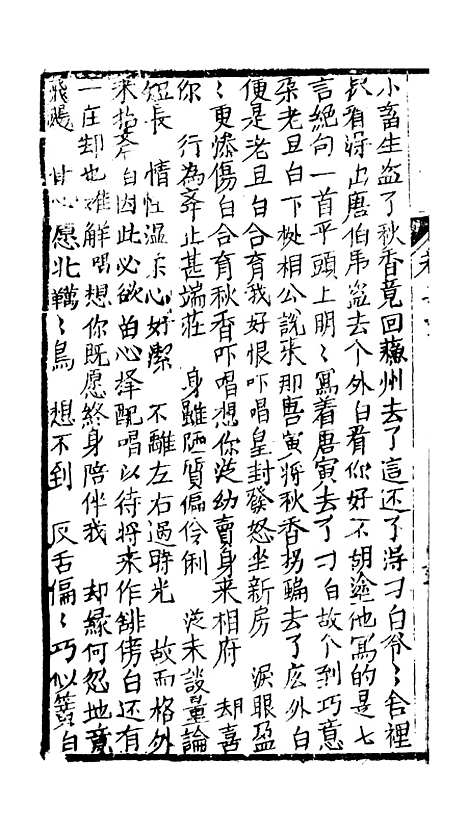 小畜生盗了秋香竟回蘇州去了這还了得刁白爷〻舍裡
长看得出唐伯虎盗去个外白看你好不胡塗他寫的是七
言絕句一首平頭上明〻寫着唐寅去了刁白故个到巧意
杂老旦白下桃相公說来那唐寅将秋香拐騙去了広外白
便是老旦白合育我好恨吓唱皇封發怒坐新房 淚眼盈
〻更惨傷白合育秋香吓唱想你從幼賣身来相府 却喜
你 行為舉止甚端莊 身雖陋質偏伶俐 從未談量論
短長 情性温柔心好潔 不離左右過時光 故而格外
来抬舉白因此必欲留心擇配唱以待将来作誹傍白还有
一庄却也难解唱想你既愿終身陪伴我 却緣何忽地意
飛颺 甘心愿北鞲〻鳥 想不到 反舌偏〻巧似簧白